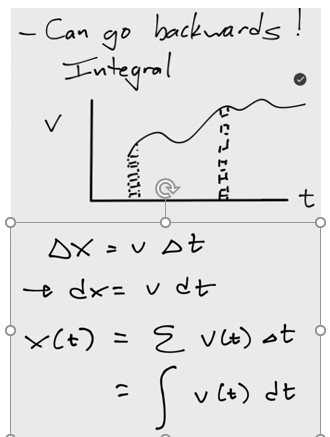 - Can go backwards!
Integral
V
t
Δx = v Δt
→ dx = v dt
x(t) = Σ v(t) Δt
= ∫ v(t) dt